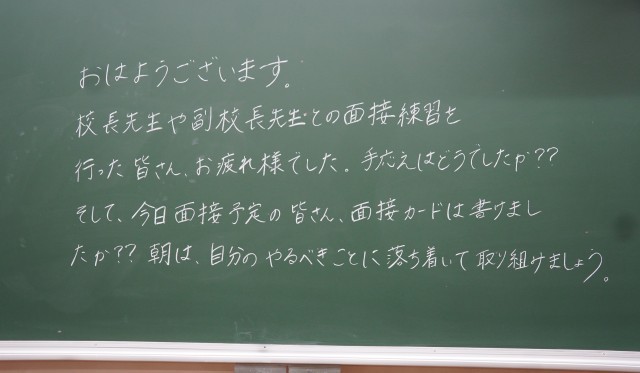 おはようございます。
校長先生や副校長先生との面接練習を
行った皆さん、お疲れ様でした。手応えはどうでしたか??
そして、今日面接予定の皆さん、面接カードは書けまし
たか?? 朝は、自分のやるべきことに落ち着いて取り組みましょう。